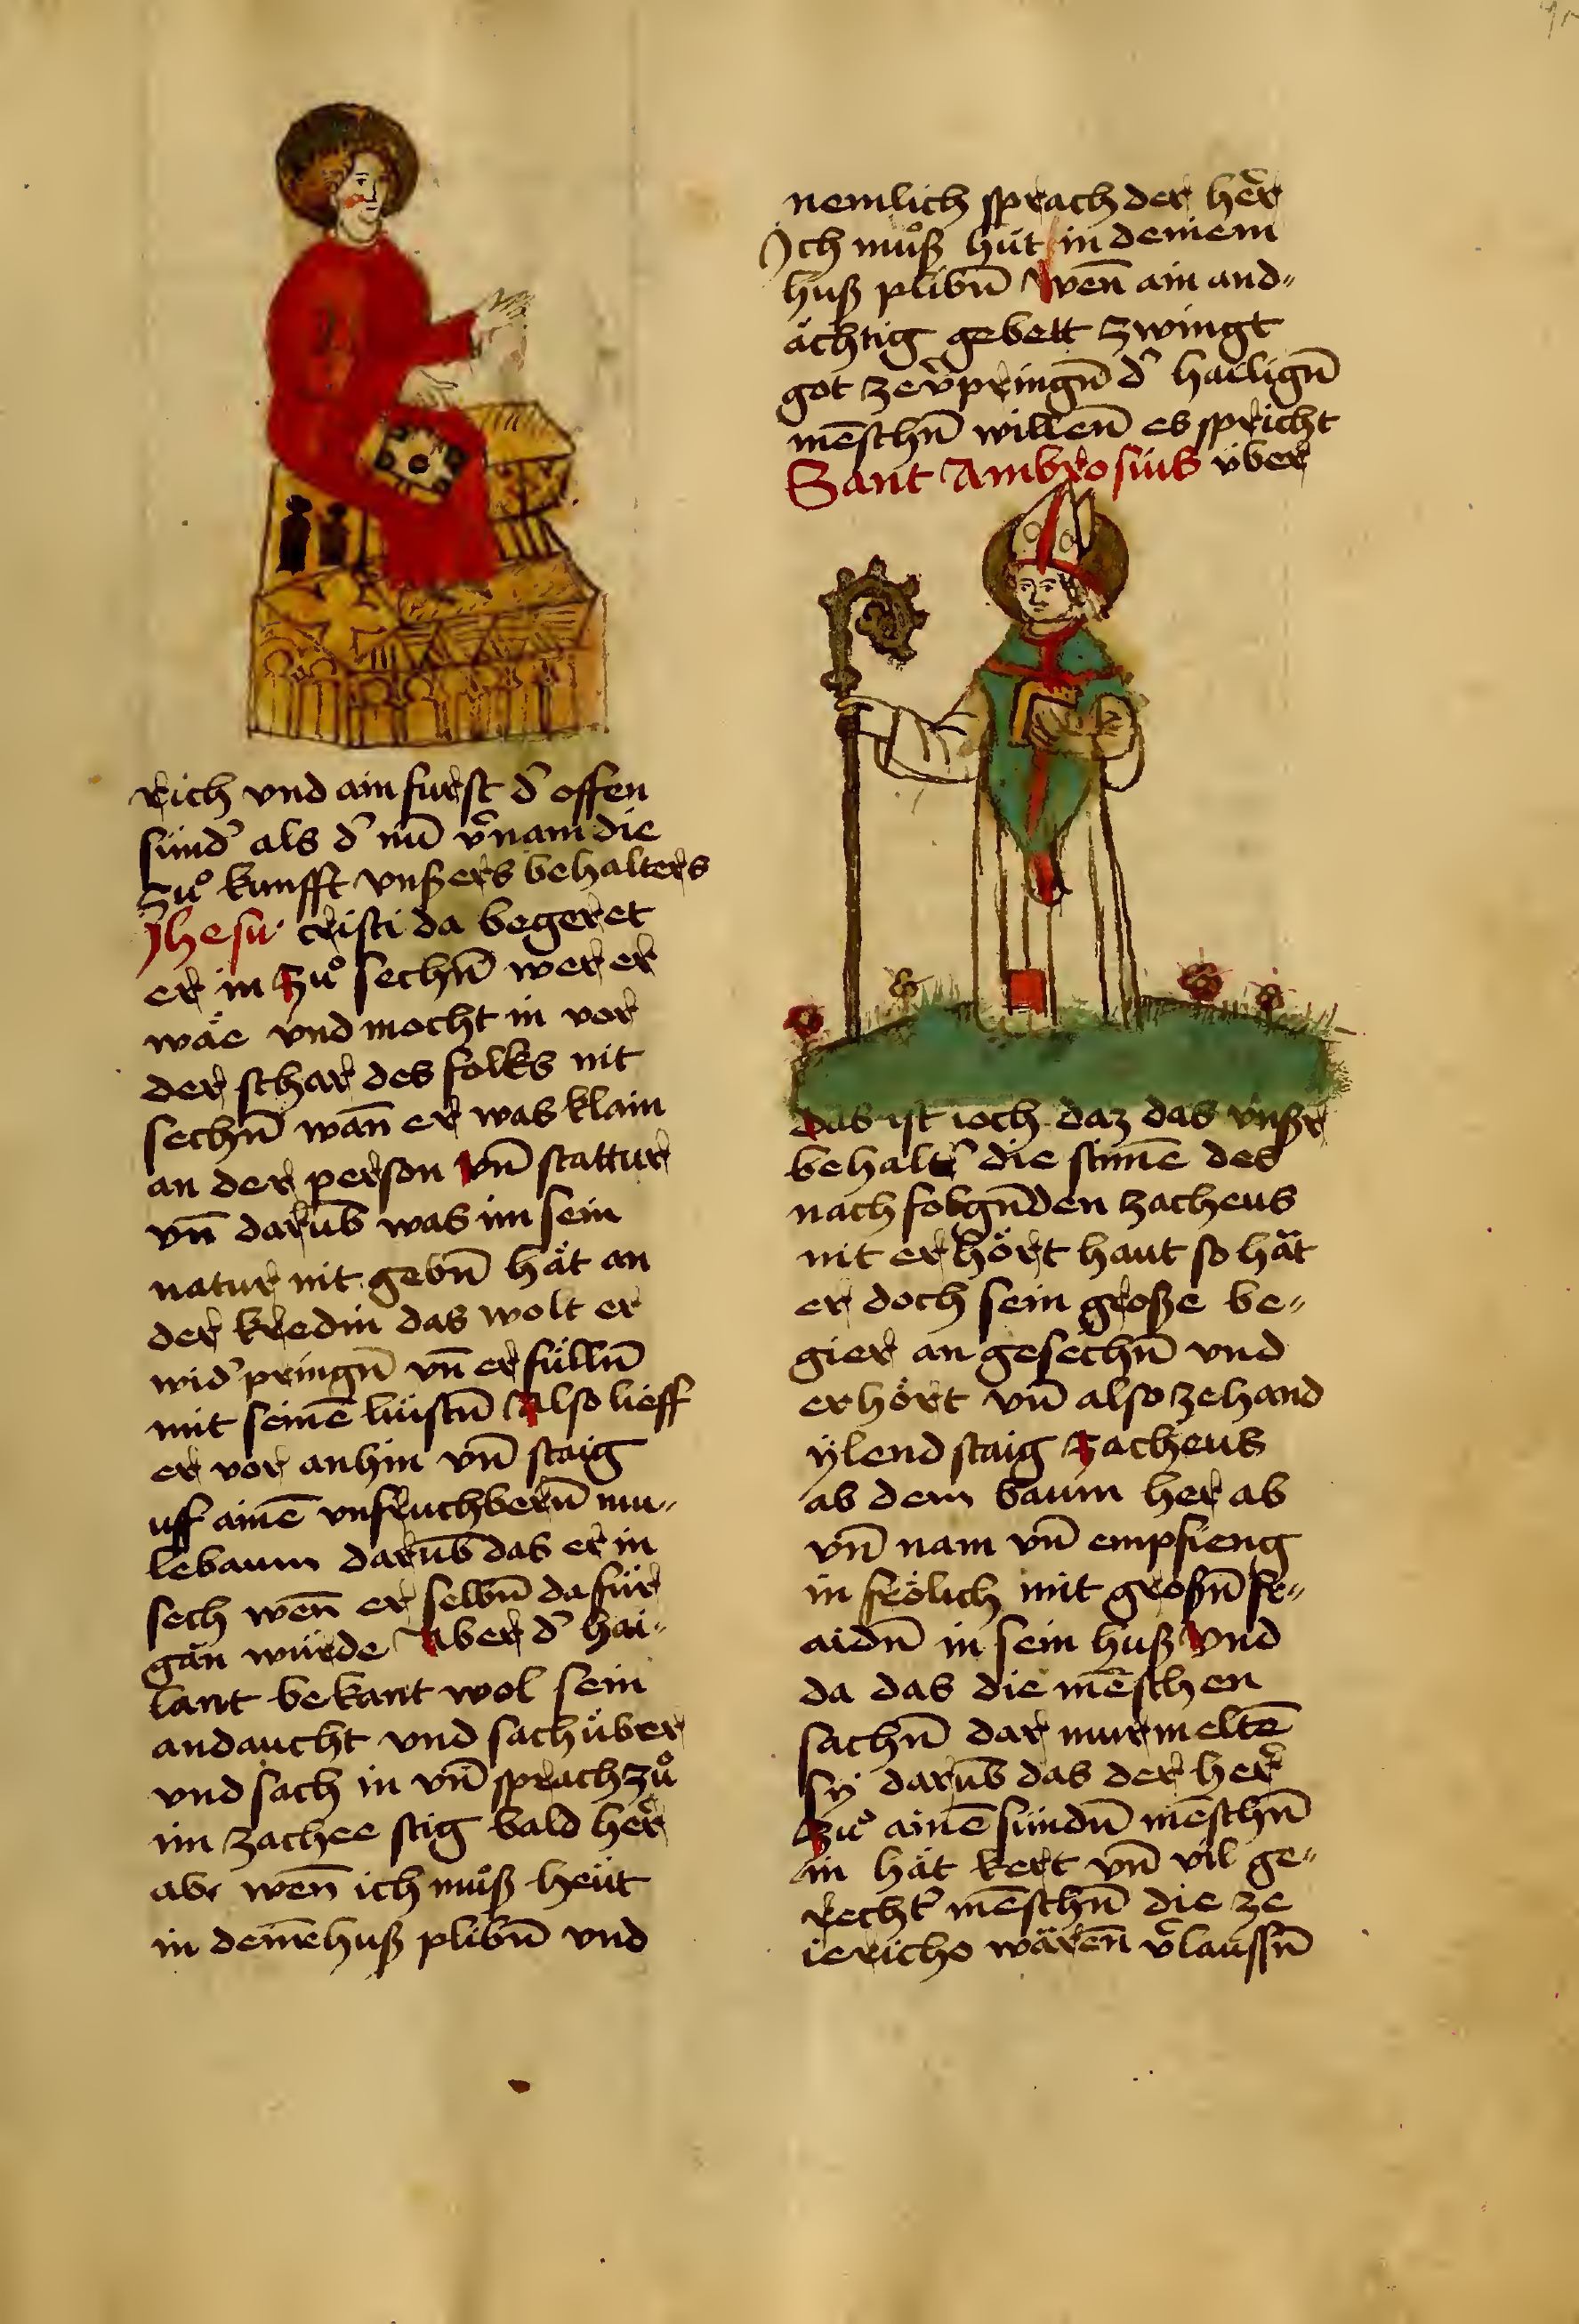 rich vnd ain furst d̄ offen
sünd̄ als d̄ nū v̄nam die
zuͦ kunfft vnßers behalters
Jhesu cristi da begeret
er in zuͦ sechn̄ wer er
wäe vnd mocht in vor
der schar des folks nit
sechn̄ wān er was klain
an der person vn̄ stattur
vn̄ darūb was im sein
natur nit gebn̄ hät an
der kredin das wolt er
wid̄ pringn̄ vn̄ erfülln̄
mit seinē lüistn̄ Also lieff
er vor anhin vn̄ staig
uff ainē vnfruchbern̄ mu-
lebaum darūb das er in
sech wēn er selbn̄ da für
gän würde Aber d̄ hai-
lant bekant wol sein
andaucht vnd sach über
vnd sach in vn̄ sprach zuͦ
im zachee stig bald her
abe wēn ich muͦß heüt
in deinē huß plibn̄ vnd
nemlich sprach der her̄
Ich muͦß hüt in deinem
huß plibn̄ Wēn ain and-
ächtig gebett zwingt
got zev̄pringn̄ d̄ hailign̄
mēschn̄ willen̄ es spricht
Sant Ambrosius über
das ist ioch daz das vnßr
behalt̄ die stimē des
nach folgn̄den zacheus
nit erhört haut so hät
er doch sein große be-
gier an gesechn̄ vnd
erhört vn̄ also zehand
ylend staig Zacheus
ab dem baum her ab
vn̄ nam vn̄ empfieng
in frölich mit großn̄ fr-
aidn̄ in sein huß Vnd
da das die mēschen
sachn̄ dar murmeltē
sÿ darūb das der her̄
Zuͦ ainē sündn̄ mēschn̄
in hät kert vn̄ vil ge-
recht̄ mēschn̄ die ze
iericho wären̄ v̄laussn̄